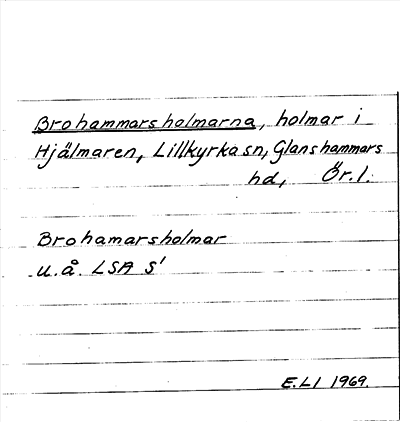 Brohammarsholmarna, holmar i
Hjälmaren, Lillkyrka sn, Glanshammars
hd, Ör. l.
Brohamarsholmar
u.å. LSA S'
E.LI 1969.